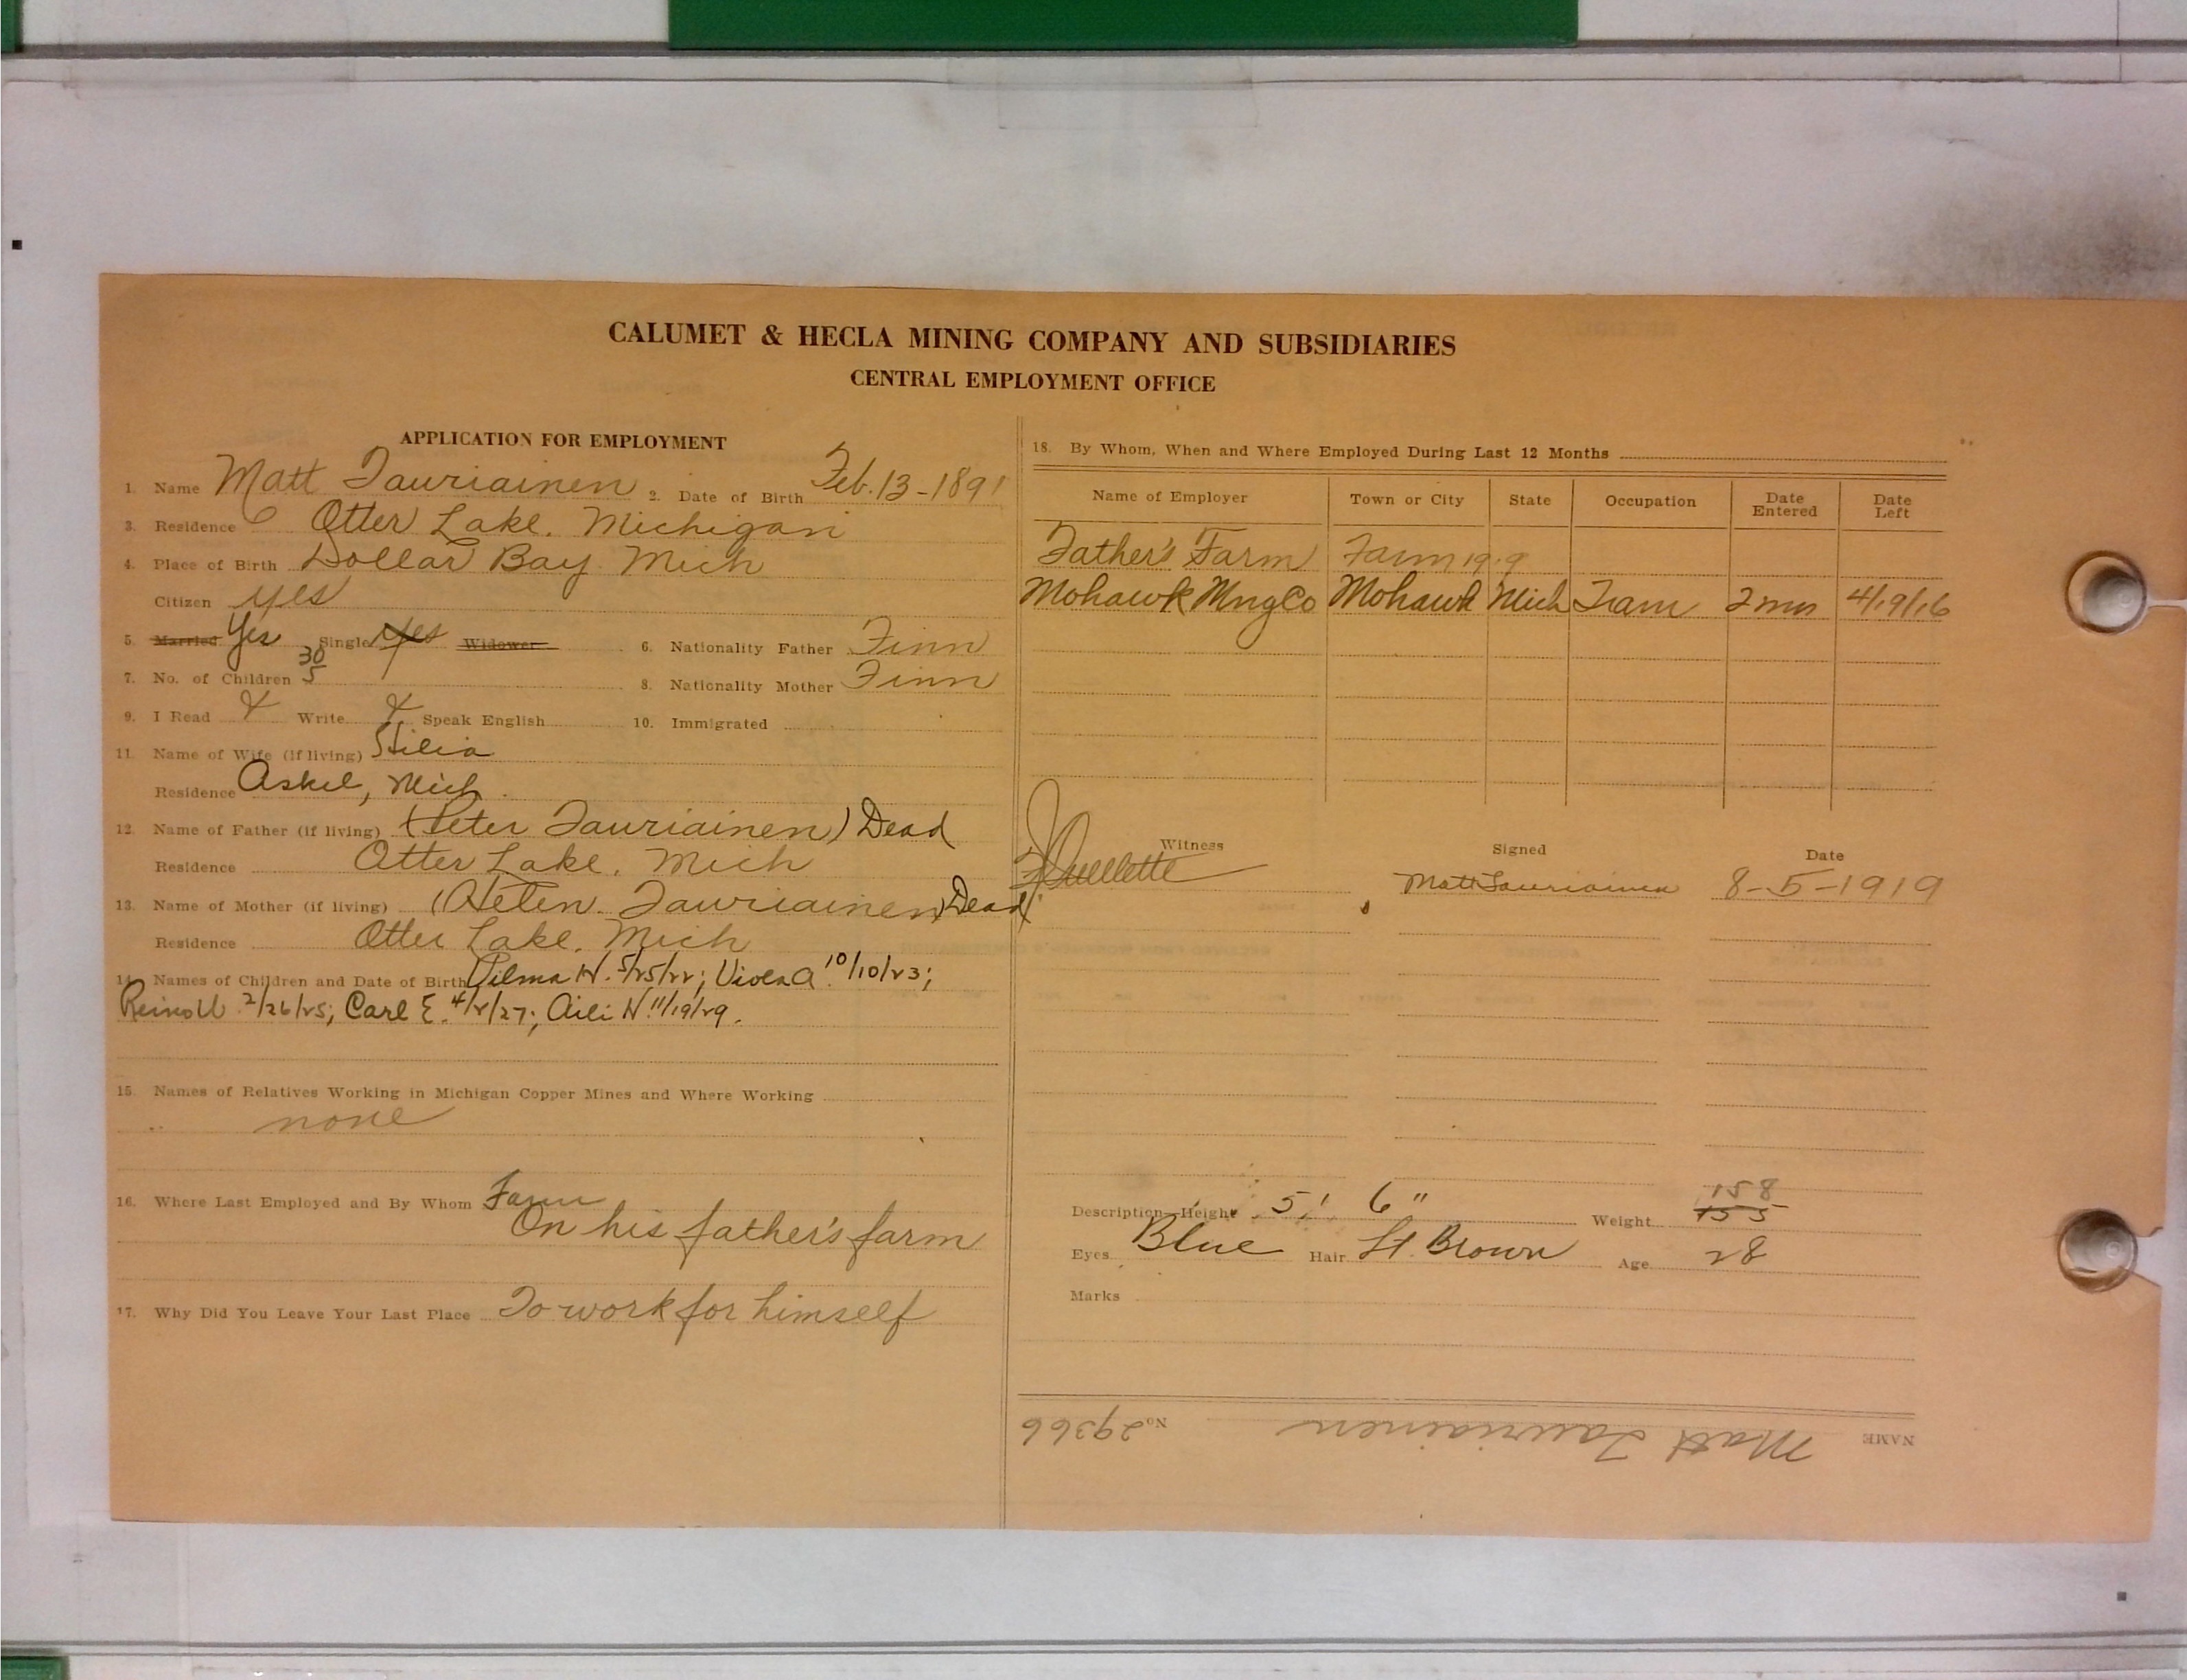 CALUMET & HECLA MINING COMPANY AND SUBSIDIARIES
CENTRAL EMPLOYMENT OFFICE
APPLICATION FOR EMPLOYMENT
1. Name Matt Tauriainen 2. Date of Birth Feb. 13-1891
3. Residence Otter Lake. Michigan
4. Place of Birth Dollar Bay Mich
Citizen yes
5. Married Yes Single Yes Widower 6. Nationality Father Finn
7. No. of Children 30 5 8. Nationality Mother Finn
9. I Read Write Speak English 10. Immigrated
11. Name of Wife (if living) Hilia
Residence Askel, Mich.
12. Name of Father (if living) (Peter Tauriainen) Dead
Residence Otter Lake, Mich
13. Name of Mother (if living) (Helen. Tauriainen) Dead
Residence Otter Lake. Mich
14. Names of Children and Date of Birth Vilma H. 5/25/22; Viola A. 10/10/23;
Reino U 2/26/25; Carl E. 4/2/27; Aili N 11/19/29.
15. Names of Relatives Working in Michigan Copper Mines and Where Working
none
16. Where Last Employed and By Whom Farm
On his father's farm
17. Why Did You Leave Your Last Place To work for himself
18. By Whom, When and Where Employed During Last 12 Months
Name of Employer Town or City State Occupation Date Entered Date Left
Father's Farm Farm 1919
Mohawk Mng Co Mohawk Mich Tram 2 mn 4/19/16
Witness Signed Date
Ouellette Matt Tauriainen 8-5-1919
158
Description—Height 5' 6" Weight 155
Eyes Blue Hair Lt. Brown Age 28
Marks
NAME Matt Tauriainen No. 29366